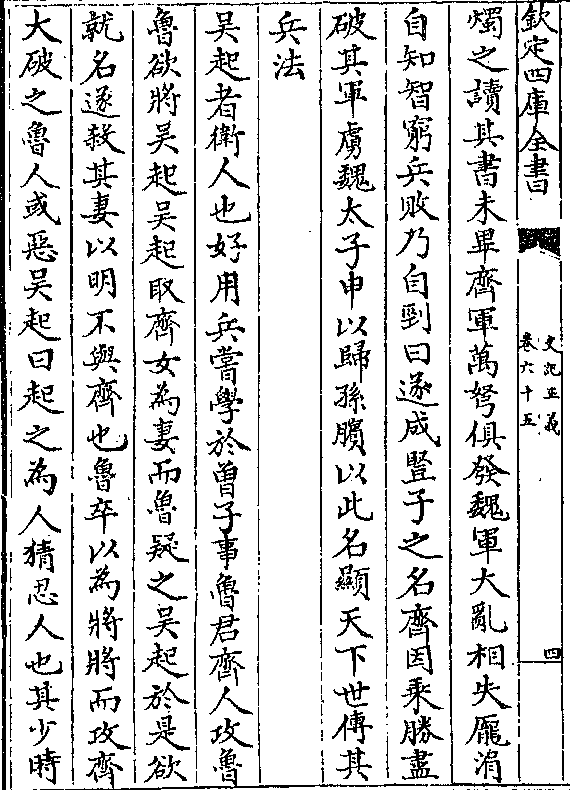 欽定四庫全書
史記正義
卷六十五
四
燭之讀其書未畢齊軍萬弩俱發魏軍大亂相失龐涓
自知智窮兵敗乃自剄曰遂成豎子之名齊因乘勝盡
破其軍虜魏太子申以歸孫臏以此名顯天下世傳其
兵法
吴起者衛人也好用兵嘗學於曾子事魯君齊人攻魯
魯欲將吴起吴起取齊女為妻而魯疑之吴起於是欲
就名遂殺其妻以明不與齊也魯卒以為將將而攻齊
大破之魯人或惡吴起曰起之為人猜忍人也其少時